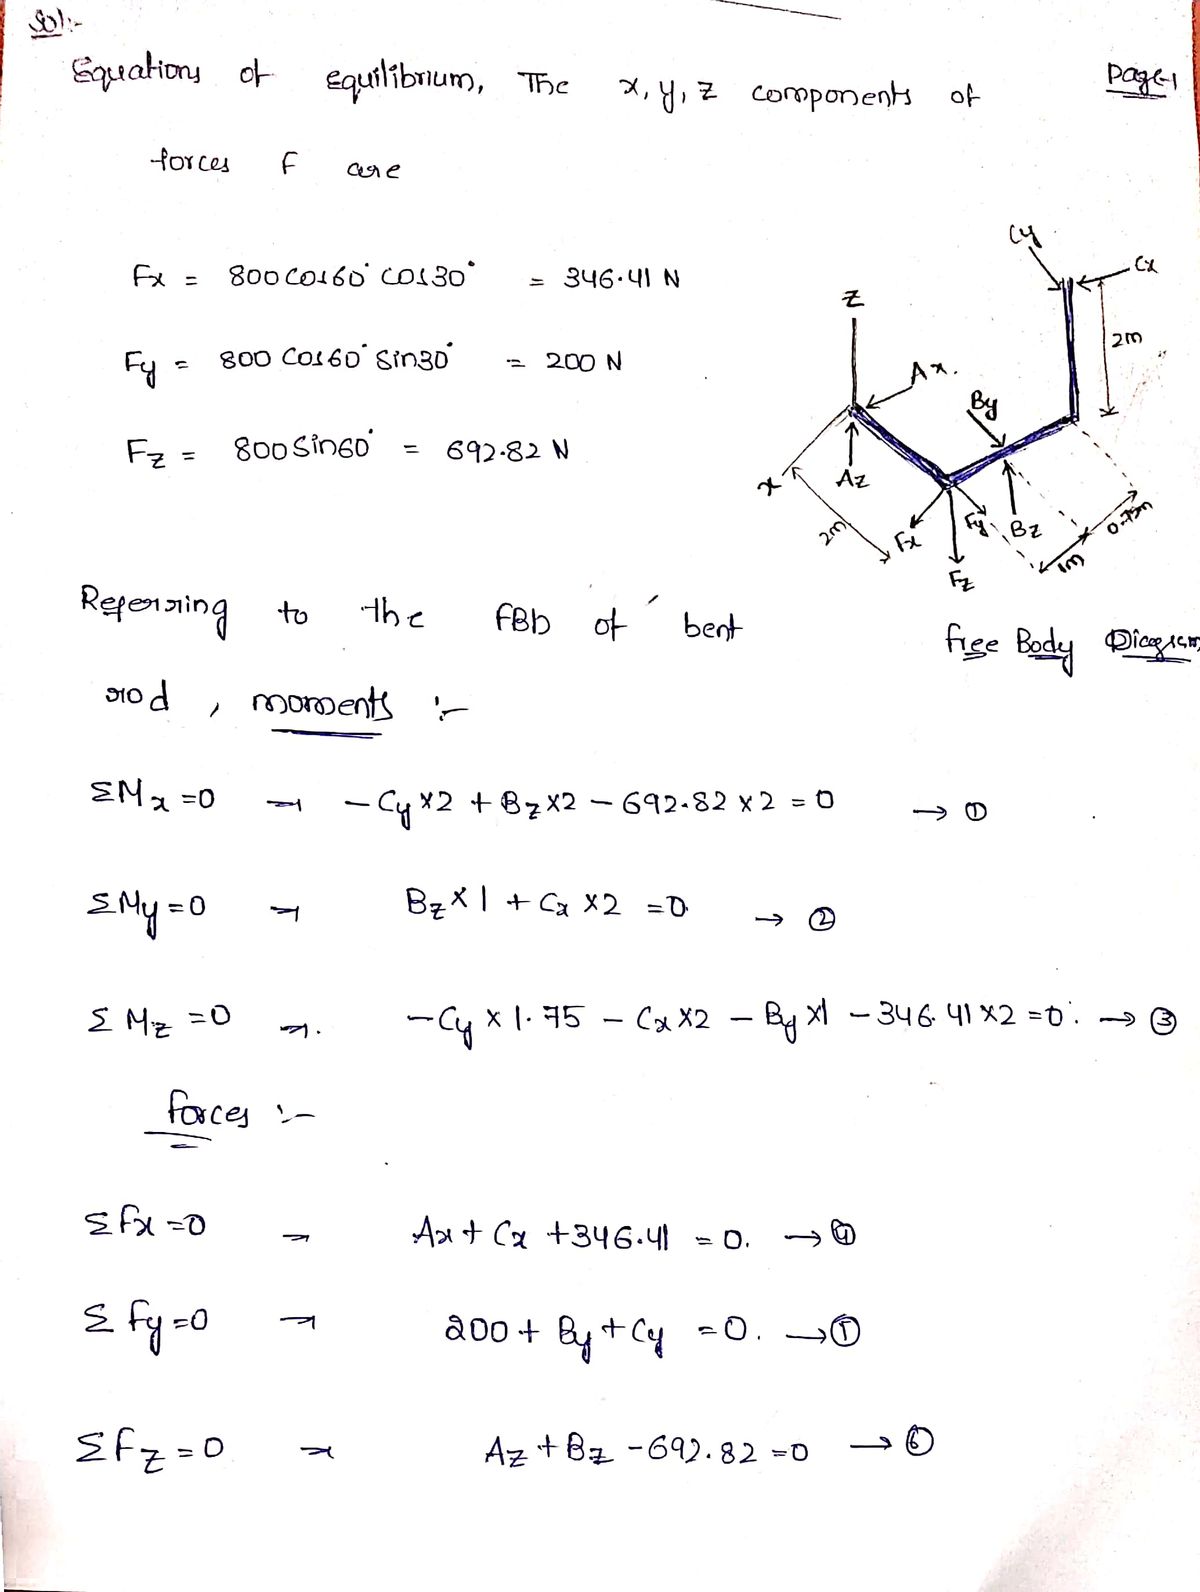 Sol:-
Equations of equilibrium, The x, y, z components of
Page-1
forces F are
Fx = 800 cos60° cos30° = 346.41 N
Fy = 800 cos60° sin30° = 200 N
Fz = 800 sin60° = 692.82 N
Cy
Cx
Z
2m
Ax.
By
x
Az
2m
Fx
Fy
Bz
0.75m
1m
Fz
Referring to the FBD of bent
Free Body Diagram
rod, moments :-
ΣMx=0 → -Cy×2 + Bz×2 - 692.82×2 = 0 → ①
ΣMy=0 → Bz×1 + Cx×2 = 0 → ②
ΣMz=0 → -Cy×1.75 - Cx×2 - By×1 - 346.41×2=0. → ③
forces :-
Σfx=0 → Ax + Cx + 346.41 = 0. → ④
Σfy=0 → 200 + By + Cy = 0. →
Σfz=0 → Az + Bz - 692.82 = 0 → ⑥